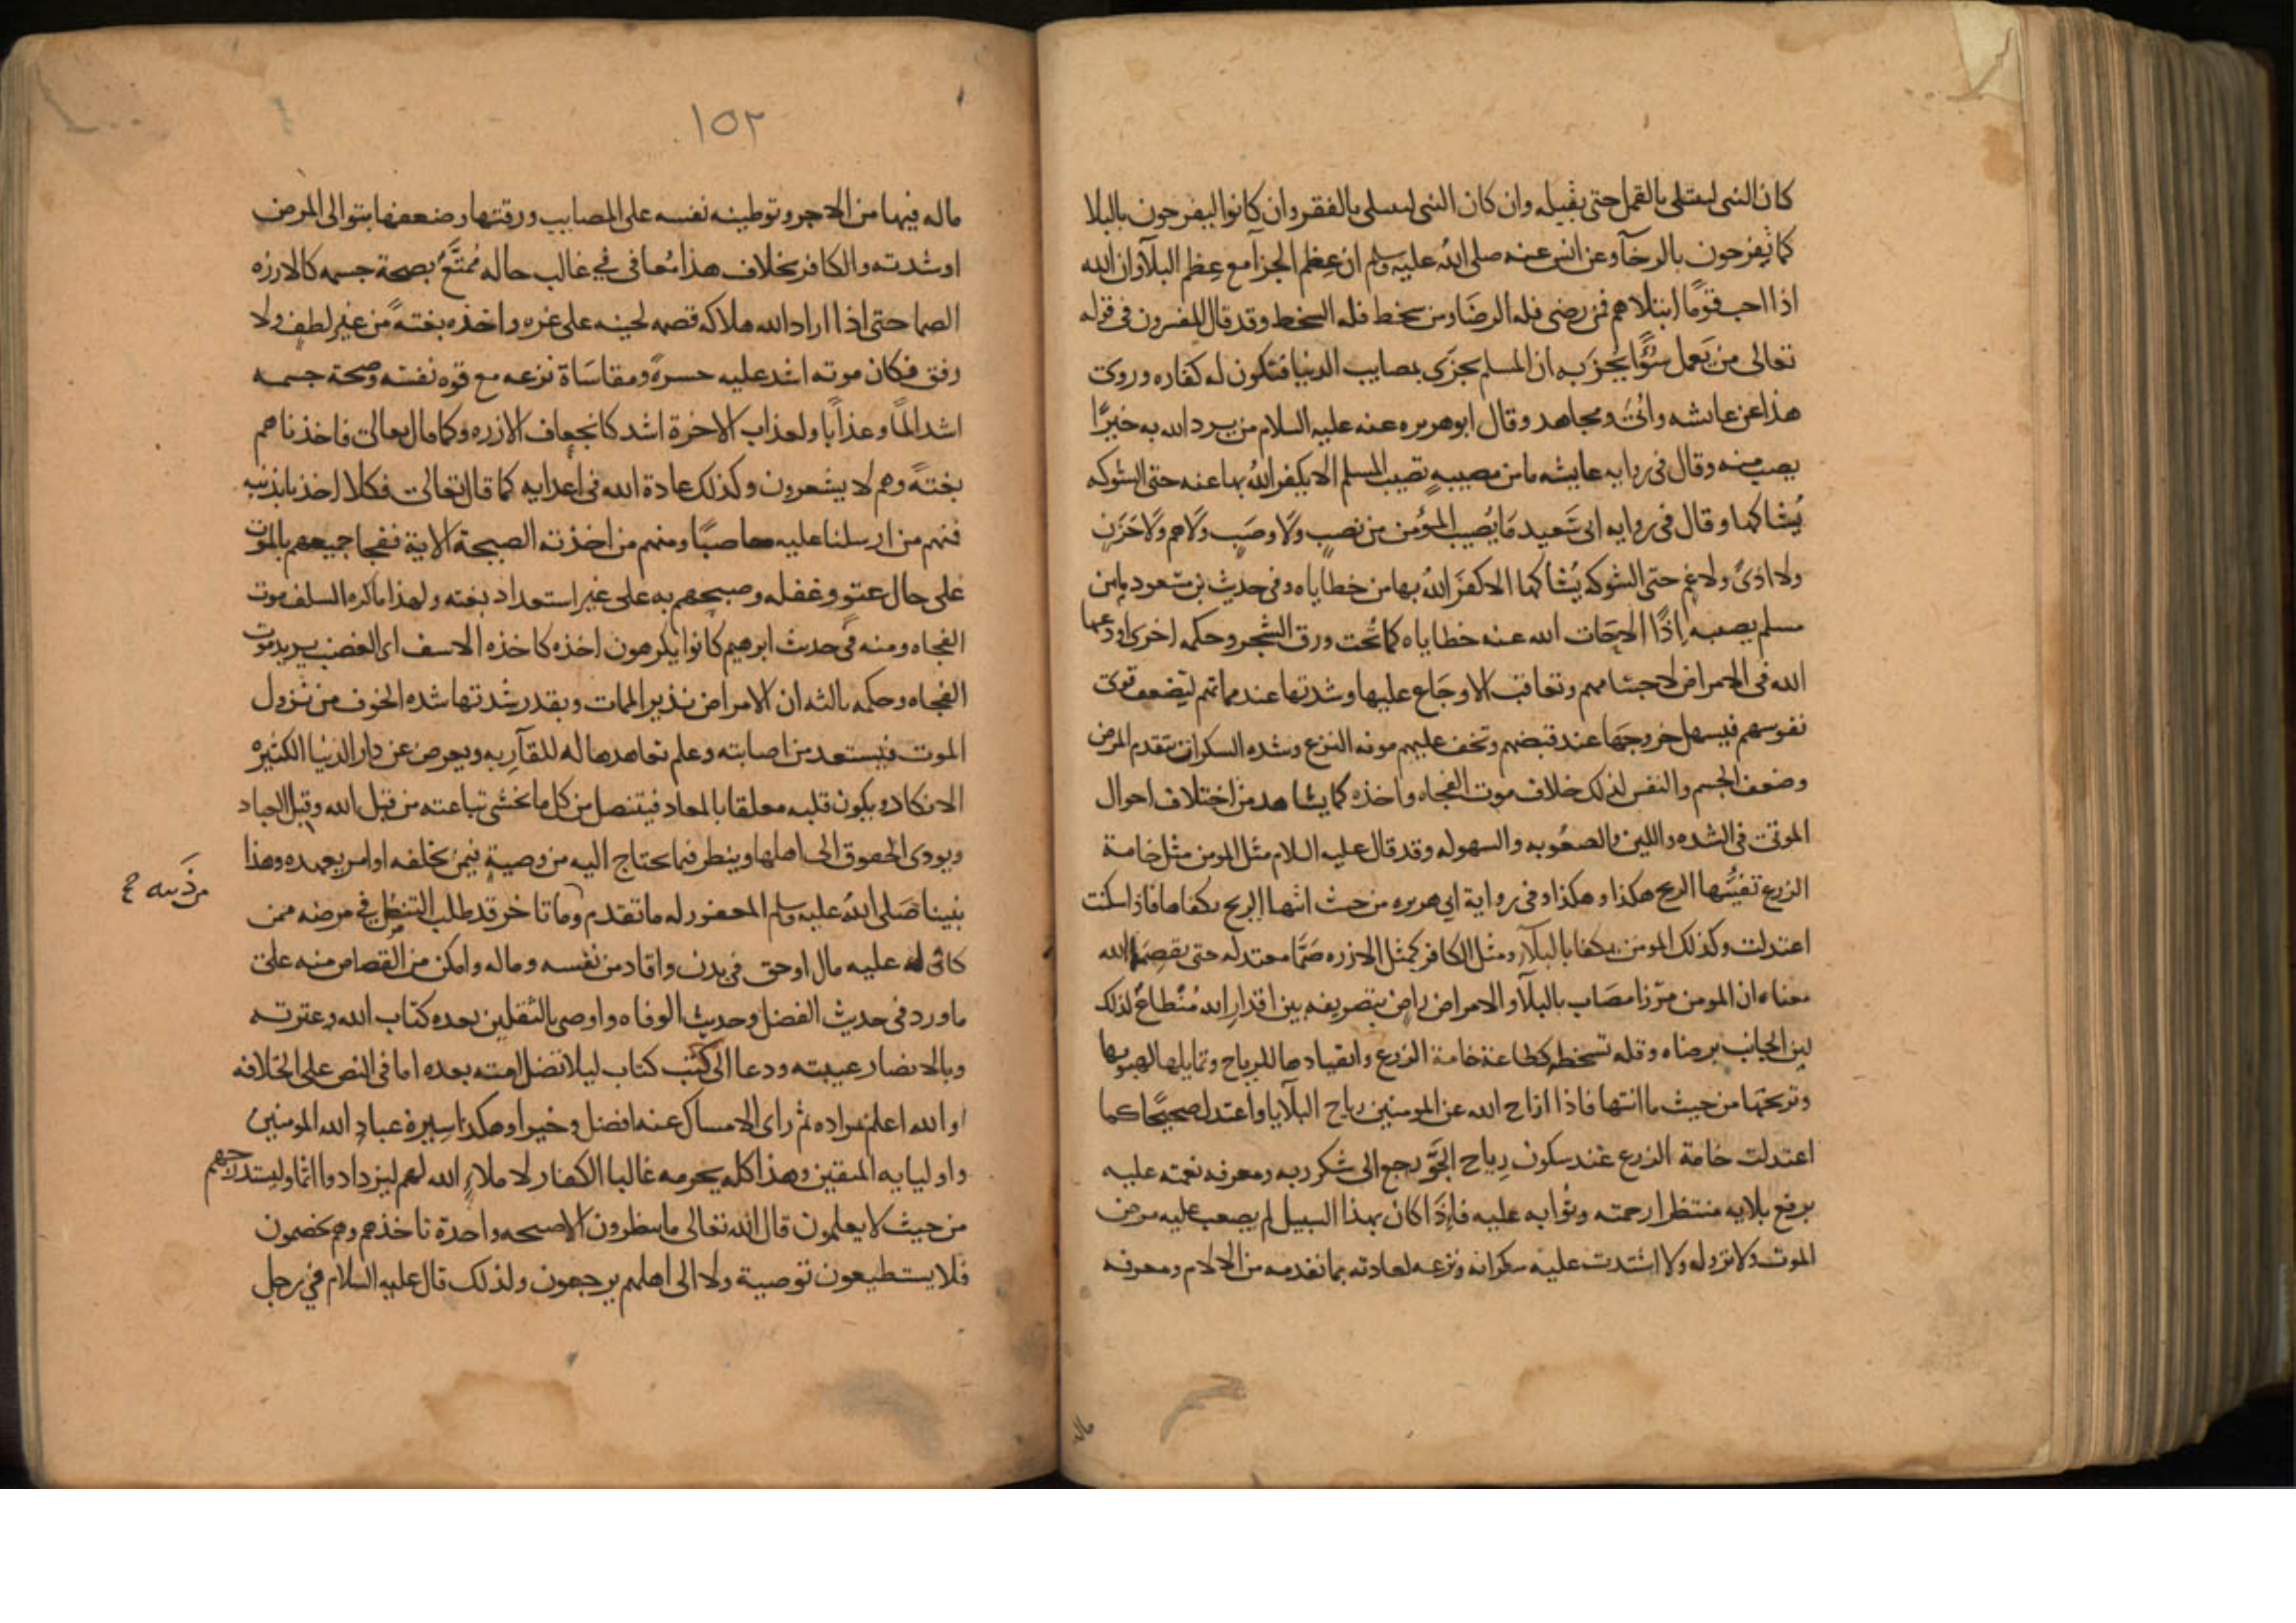 كان النبى ليبتلى بالقمل حتى يقتله وان كان النبى ليبتلى بالفقر وان كانوا ليفرحون بالبلا
كما تفرحون بالرخآ وعن انس عنه صلى الله عليه وسلم ان عظم الجزآ مع عظم البلآ وان الله
اذا احب قومًا ابتلاهم فمن رضى فله الرضَا ومن سخط فله السخط وقد قال المفسرون فى قوله
تعالى من يَعمل سوًّا يجز به ان المسلم يجزَى بمصايب الدنيا فتكون له كفاره وروى
هذا عن عائشه وابىّ ومجاهد وقال ابو هريره عنه عليه السلام من يرد الله به خيرًا
يصب منه وقال فى روايه عايشه ما من مصيبهٍ تصيب المسلم الا يكفر اللهُ بها عنه حتى الشوكه
يُشاكها وقال فى روايه ابى سَعيد مَا يُصيب المؤمن من نصبٍ ولَا وصَبٍ ولَا هم ولَا حَزَنٍ
ولا اذىً ولا غمٍ حتى الشوكه يُشاكها الا كفَر اللهُ بها من خطاياه وفى حديث بن مسعود ما من
مسلم يصيبه اذًا الا حَات الله عنه خطاياه كما تُحت ورق الشجر وحكمه اخرى اودعها
الله فى الامراض لاجسامهم وتعاقب الاوجَاع عليها وشدتها عند مماتهم لتضعف قوى
نفوسهم فيسهل خروجهَا عند قبضهم وتخف عليهم مونه النزع وشده السكرات بتقدم المرض
وضعف الجسم والنفس لذلك خلاف موت الفجاه واخذه كما يشاهد من اختلاف احوال
الموتى فى الشده واللين والصعُوبه والسهوله وقد قال عليه السلام مثل المومن مثل خامة
الزرع تفيّئُها الريح هكذا وهكذا وفى رواية ابى هريره من حيث اتتها الريح تكفاها فاذا سكنت
اعتدلت وكذلك المومن يكفا بالبلآ ومثل الكافر كمثل الارزه صَمَّا معتدله حتى يقصِمَها الله
معناه ان المومن مرّزا مصَاب بالبلآ والامراض راضٍ بتصريفه بين اقدارِ الله مُنْطاعٌ لذلك
لين الجانب برضاه وقله تسخطه كطاعة خامة الزرع وانقيادها للرياح وتمايلها لهبوبها
وترنحهَا من حيث ما اتتها فاذا ازاح الله عن المومنين رياح البلَايا واعتدل صحيحًا كما
اعتدلت خامة الزرع عند سكون رِياح الجوّ رجع الى شكر ربه ومعرفه نعمته عليه
برفع بلايه منتظرا رحمته وثوابه عليه فاِذَا كان بهذا السبيل لم يصعب عليه مرض
الموت ولا نزوله ولا اشتدت عليه سكراته ونزعه لعادته بما تقدمه من الالام ومعرفه
ماله
١٥٢
ماله فيها من الاجر وتوطينه نفسه على المصايب ورقتها وضعفها بتوالى المرض
او شدته والكافر بخلاف هذا مُعافى فى غالب حاله مُمتَّعٌ بصحة جسمه كالارزه
الصما حتى اذا اراد الله هلاكه قصمه لحينه على غره واخذه بغتةً من غير لطفٍ ولا
رفق فكان موته اشد عليه حسرةً ومقاسَاة نزعه مع قوه نفسه وصحة جسمه
اشد المًا وعذابًا ولعذاب الاخرة اشد كانجعاف الارزه وكما قال تعالى فاخذناهم
بغتةً وهم لا يشعرون وكذلك عادة الله فى اعدايه كما قال تعالى فكلا اخذنا بذنبه
فمنهم من ارسلنا عليه حاصبًا ومنهم من اخذته الصيحة الاية ففجا جميعهم بالموت
على حال عتوٍ وغفله وصبحهم به على غير استعداد بغته ولهذا ما كره السلف موت
الفجاه ومنه فى حديث ابرهيم كانوا يكرهون اخذه كاخذه الاسف اى الغضب يريد موت
الفجاه وحكمه ثالثه ان الامراض نذير الممات وبقدر شدتها شده الخوف من نزول
الموت فيستعد من اصابته وعلم تعاهدها له للقآ ربه ويعرض عن دار الدنيا الكثيره
الانكاد ويكون قلبه معلقا بالمعاد فيتنصل من كل ما يخشى تباعته من قبَل الله وقبل العباد
ويودى الحقوق الى اهلها وينظر فيما يحتاج اليه من وصيةٍ فيمن يخلفه او امر يعهده وهذا
نبينا صَلى اللهُ عليه وسلم المغفور له ما تقدم وما تاخر قد طلب التنصّل فى مرضه ممن
من ذنبه
كان له عليه مال او حق فى بدن واقاد من نفسه وماله وامكن من القصاص منه على
ما ورد فى حديث الفضل وحديث الوفاه واوصى بالثقلين بعده كتاب الله وعترته
وبالانصار عيبته ودعا الى كتب كتاب ليلا تضل امته بعده اما فى النص على الخلافه
او الله اعلم بمراده ثم راى الامساك عنه افضل وخيرا وهكذا سيرة عباد الله المومنين
واوليايه المتقين وهذا كله يحرمه غالبا الكفار لاملاءِ الله لهم ليزدادوا اثما وليستدرجهم
من حيث لا يعلمون قال الله تعالى ما ينظرون الا صيحه واحدة تاخذهم وهم يخصمون
فلا يستطيعون توصية ولا الى اهلهم يرجعون ولذلك قال عليه السلام فى رجل